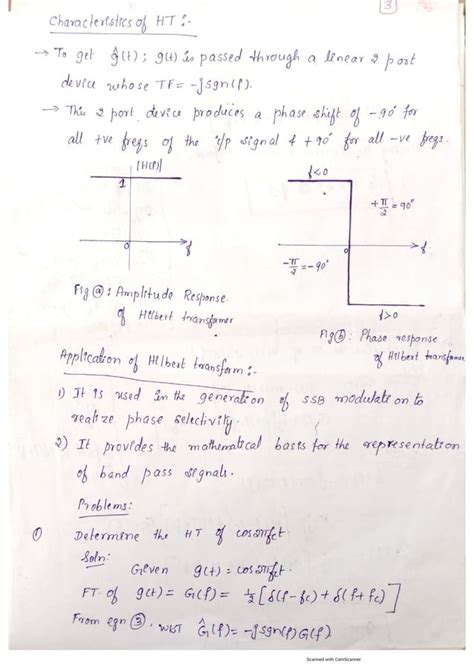 3
Characteristics of HT :-
→ To get ĝ(t) ; g(t) is passed through a linear 2 port
device whose TF = -jsgn(f).
→ This 2 port device produces a phase shift of -90° for
all +ve freqs of the i/p signal & +90° for all -ve freqs.
|H(f)|
1
0
f
f<0
+π/2 = 90°
0
f
-π/2 = -90°
f>0
Fig ⓐ: Amplitude Response
of Hilbert transfomer
Fig ⓑ: Phase response
of Hilbert transfomer
Application of Hilbert transform :-
1) It is used in the generation of SSB modulation to
realize phase selectivity.
2) It provides the mathematical basis for the representation
of band pass signals.
Problems:
① Determine the HT of cos2πfct.
Soln:
Given g(t) = cos2πfct.
FT of g(t) = G(f) = 1/2 [δ(f-fc) + δ(f+fc)]
From eqn ③, WKT Ĝ(f) = -jsgn(f)G(f)
Scanned with CamScanner